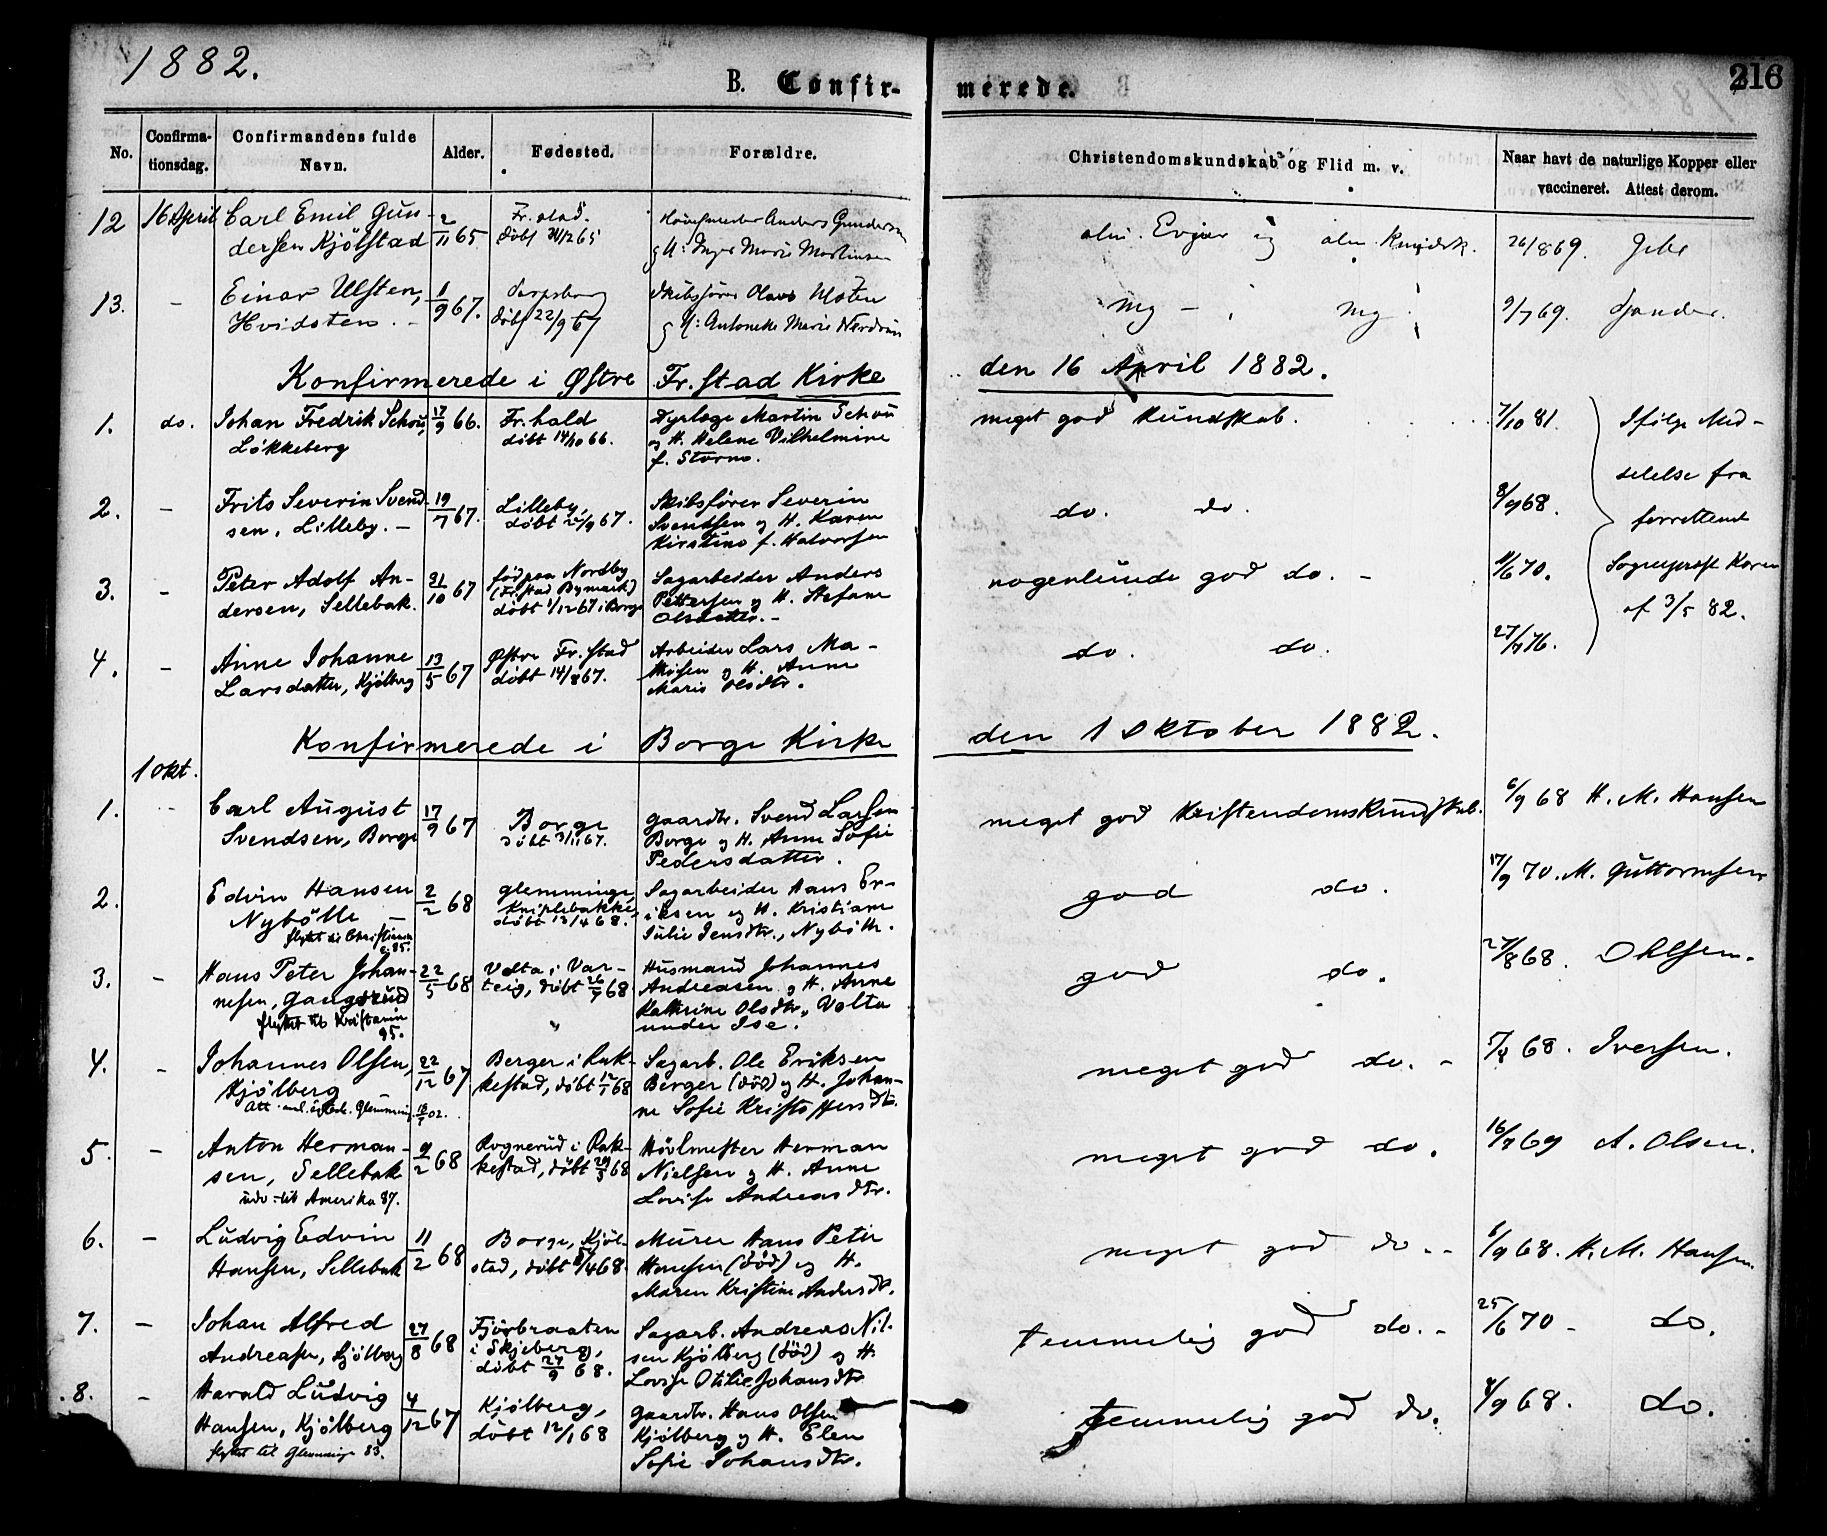 1882.
B. Confirmerede.
216
No.
Confirmationsdag.
Confirmandens fulde Navn.
Alder.
Fødested.
Forældre.
Christendomskundskab og Flid m. v.
Naar havt de naturlige Kopper eller vaccineret. Attest derom.
12 16 April Carl Emil Gundersen Kjølstad 2/11 65 Fr.stad. døbt Anders Gundersen
26/8 69.
13. - Einar Ulsten, Hvidsten. - 1/9 67. døbt 22/9 67 Skibsfører Olaus Ulsten
9/7 69.
Konfirmerede i Østre Fr.stad Kirke den 16 April 1882.
1. do. Johan Fredrik Schou, Løkkeberg 17/9 66. Fr.hald døbt 14/10 66. Dyrlæge Martin Schou og H. Helene Vilhelmine f. Storm.
meget god Kundskab. 7/10 81. Ifølge Meddelelse fra
2. - Frits Severin Svendsen, Lilleby. - 19/7 67. Lilleby, døbt 67. Skibsfører Severin Svendsen og H. Karen Kirstine f. Halvorsen
do. do. 8/9 68. forrettend
3. - Peter Adolf Andersen, Sellebak. 31/10 67 født paa Nordby (Fr.stad Bymark) døbt 1/12 67 i Borge Sagarbeider Anders Pettersen og H. Stefane Olsdatter. -
nogenlunde god do. - 70. Sogneprest
af 3/5 82.
4. - Anne Johanne Larsdatter, Kjølberg 13/5 67 Østre Fr.stad døbt 14/8 67. Arbeider Lars og H. Anne Marie Olsdtr.
do. do. 76.
Konfirmerede i Borge Kirke den 1 Oktober 1882.
1 Okt.
1. - Carl August Svendsen, Borge 17/9 67 Borge døbt 3/11 67. Gaardbr. Svend Larsen Borge og H. Anne Sofie Pedersdatter.
meget god Kristendomskundskab. 6/9 68 H. M. Hansen
2. Edvin Hansen Nybølle - 2/2 68 Glemminge, Kniplebakke, døbt 13/4 68. Sagarbeider Hans Eriksen og H. Kristiane Julie Jensdtr., Nybølle.
flyttet til Christiania
god do. 17/9 70. M. Guttormsen
3. - Hans Peter Johannesen, Gangsrud 22/5 68 Valta i Varteig, døbt 26/7 68 Husmand Johannes Andreasen og H. Anne Kathrine Olsdtr., Valta under Ise.
flyttet til Kristiania 95.
god do. 27/8 68. Ohlsen.
4. - Johannes Olsen, Kjølberg 22/12 67 Berger i Rakkestad, døbt 12/1 68 Sagarb. Ole Eriksen Berger (død) og H. Johanne Sofie Kristoffersdtr.
meget god do. - 68. Iversen.
5. - Anton Hermansen, Sellebak 9/2 68 Rognerud i Rakkestad, døbt 29/3 68 Hövlmester Herman Nielsen og H. Anne Lovise Andreasdtr.
udv. til Amerika 87.
meget god do. 16/7 69 A. Olsen.
6. - Ludvig Edvin Hansen, Sellebak 11/2 68 Borge, Kjølstad, døbt 68. Murer Hans Peter Hansen (død) og H. Maren Kristine Andersdtr.
meget god do. - 6/9 68. H. M. Hansen
7. - Johan Alfred Andreasen, Kjølberg 27/8 68 Fjørbraaten i Skjeberg, døbt 27/9 68. Sagarb. Andreas Nilsen Kjølberg (død) og H. Lovise Otilie Johansdtr.
temmelig god do. - 25/6 70 - do.
8. - Harald Ludvig Hansen, Kjølberg 4/12 67 Kjølberg, døbt 12/1 68 Gaardbr. Hans Olsen Kjølberg og H. Elen Sofie Johansdtr.
flyttet til Glemminge 83.
temmelig god do. 68. do.